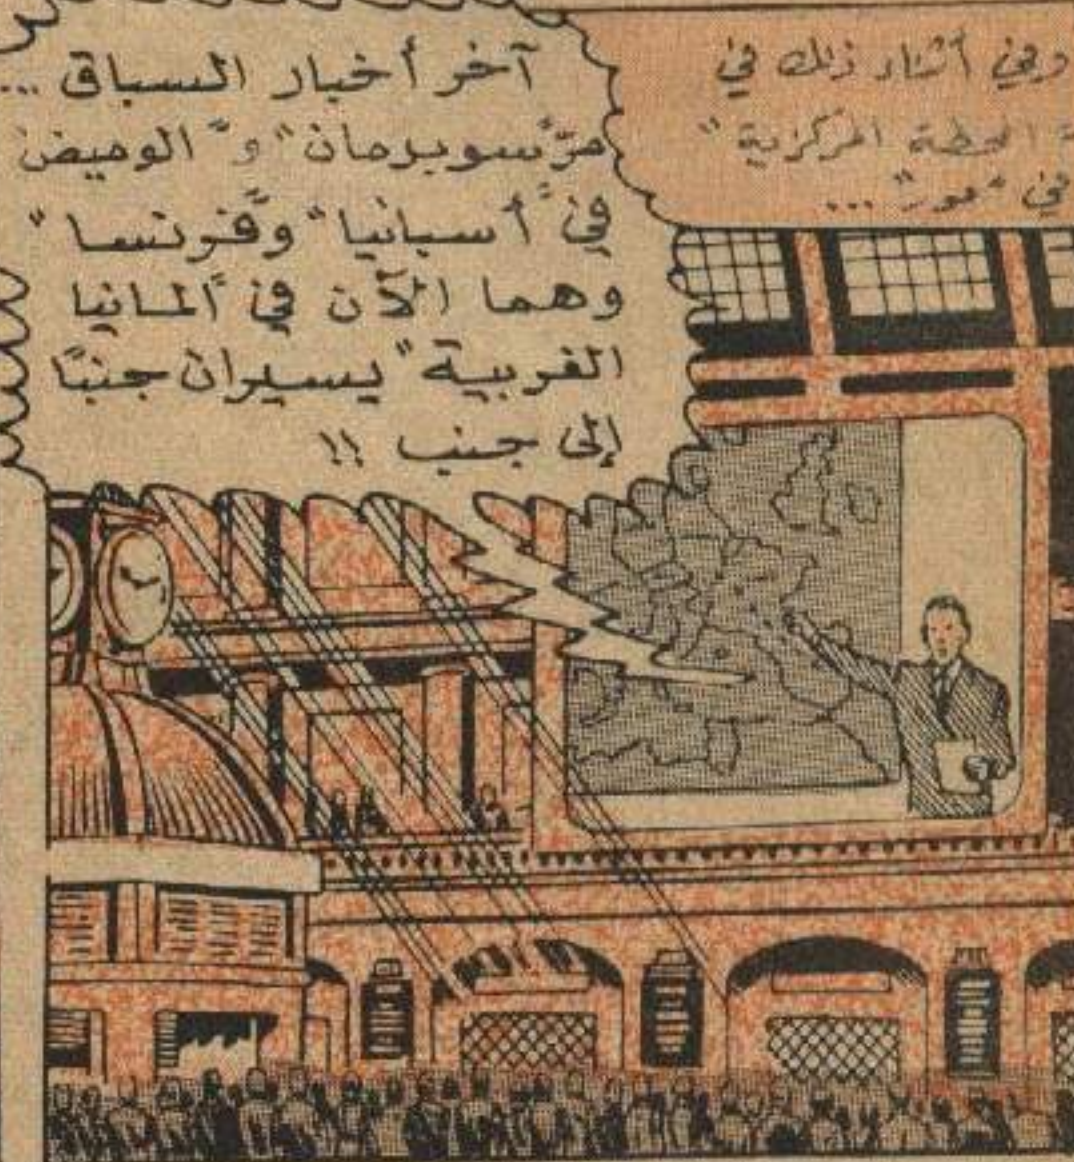 وفي أثناء ذلك في
المحطة المركزية "
في "مور" ...
آخر أخبار السباق ...
مرّ "سوبرمان" و "الوميض
في "أسبانيا" و"فرنسا"
وهما الآن في "ألمانيا
الغربية" يسيران جنبًا
إلى جنب !!